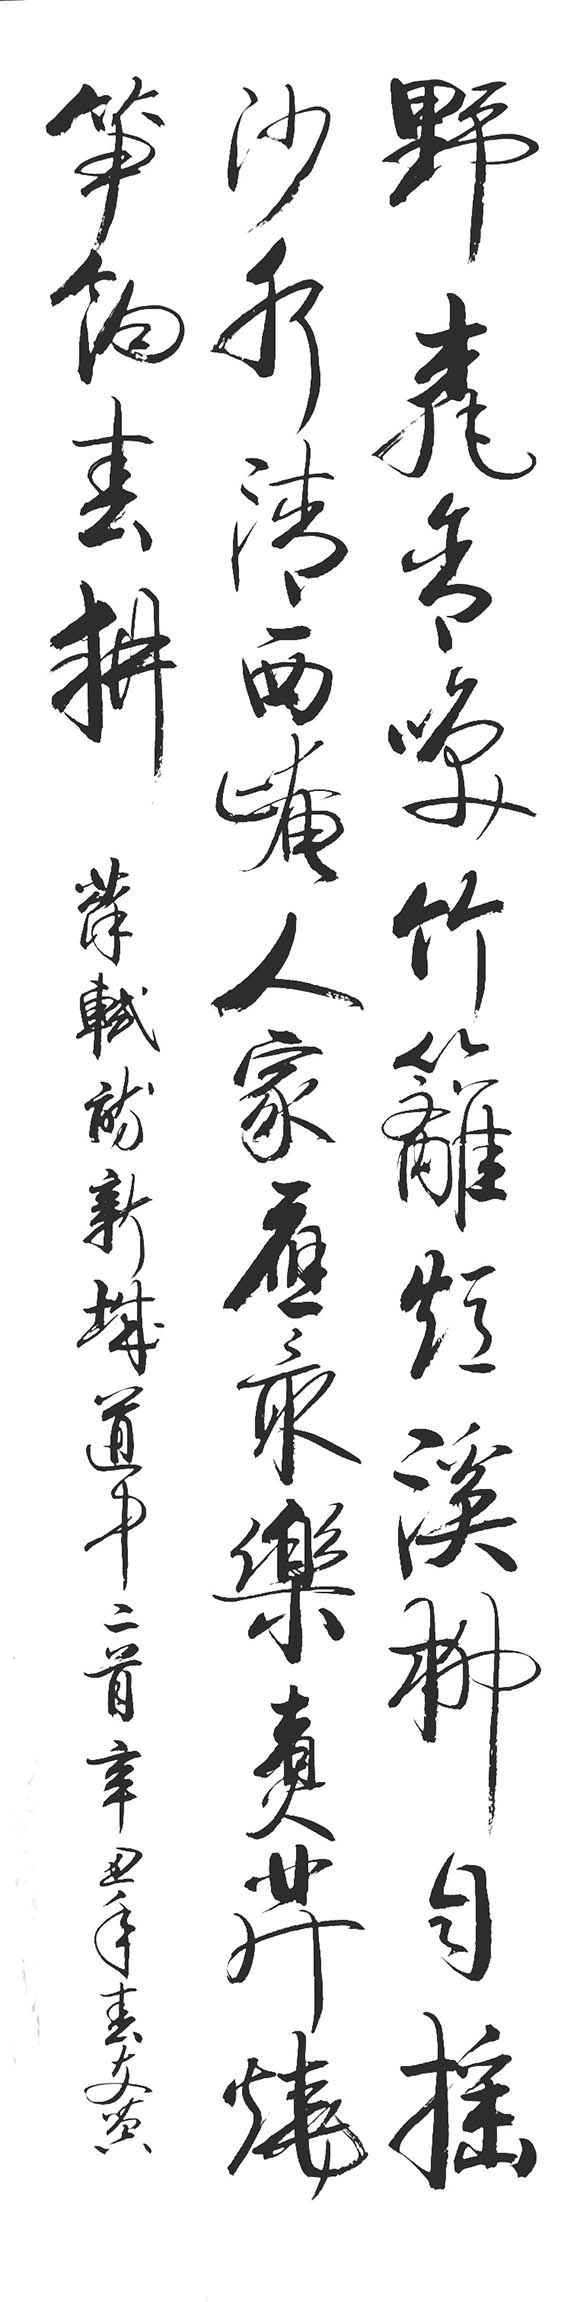 野桃含咲竹籬短溪柳自搖
沙水清西崦人家應最樂煮芹燒
笋餉春耕 蘇軾詩新城道中二首辛丑年春